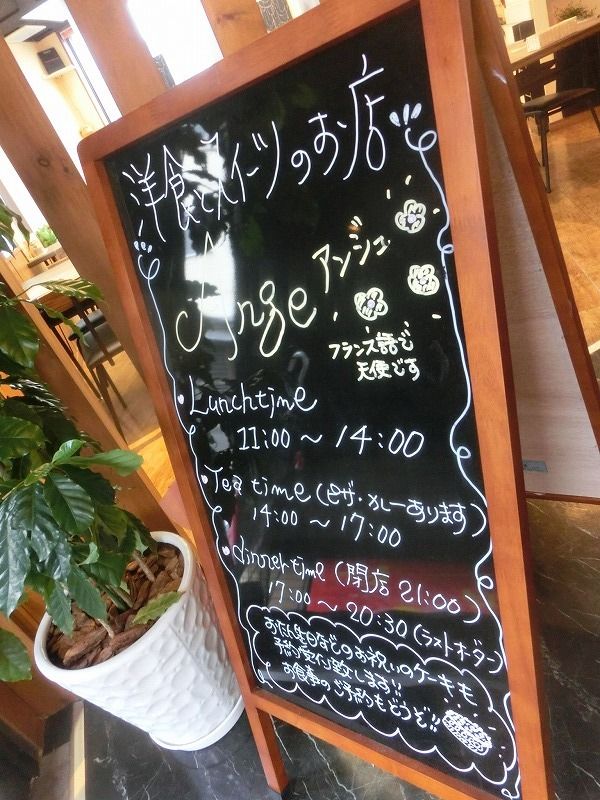 洋食とスイーツのお店
Ange アンジュ
フランス語で
天使です
• Lunchtime
11:00 ～ 14:00
• Tea time (ピザ・カレーあります)
14:00 ～ 17:00
• dinner time (閉店 21:00)
17:00 ～ 20:30 (ラストオーダー)
お誕生日などのお祝いのケーキも
予約受付致します!!
お食事のご予約もどうぞ!!